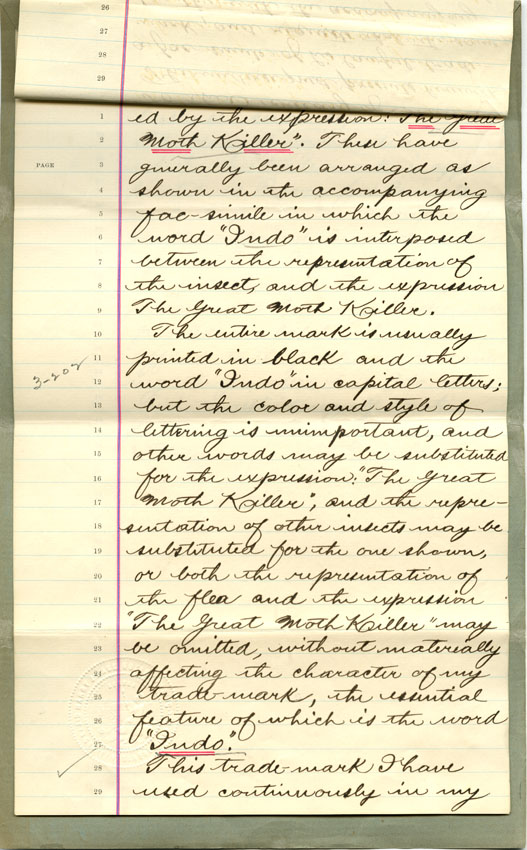 26
27
28
29
1 ed by the expression: "The Great
2 Moth Killer". These have
PAGE
3 generally been arranged as
4 shown in the accompanying
5 fac-simile in which the
6 word "Indo" is interposed
7 between the representation of
8 the insect, and the expression
9 The Great Moth Killer.
10 The entire mark is usually
11 printed in black and the
3-202
12 word "Indo" in capital letters;
13 but the color and style of
14 lettering is unimportant, and
15 other words may be substituted
16 for the expression: "The Great
17 Moth Killer", and the repre-
18 sentation of other insects may be
19 substituted for the one shown,
20 or both the representation of
21 the flea and the expression
22 "The Great Moth Killer" may
23 be omitted, without materially
24 affecting the character of my
25 trade-mark, the essential
26 feature of which is the word
27 "Indo".
28 This trade-mark I have
29 used continuously in my